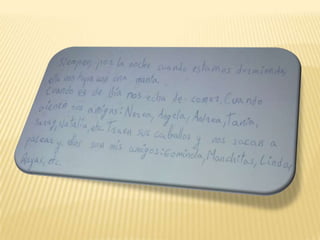 Siempre por la noche cuando estamos durmiendo,
ella nos tapa con una manta.
Cuando es de día nos echa de comer. Cuando
vienen sus amigas: Nerea, Angela, Andrea, Tania,
Saray, Natalia, etc. Traen sus caballos y nos sacan a
pasear y ellos son mis amigos: Gominola, Manchitas, Linda,
Rayas, etc.